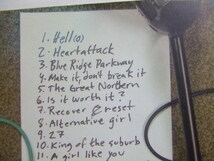 1. Hell(o)
2. Heartattack
3. Blue Ridge Parkway
4. Make it, don't break it
5. The Great Northern
6. Is it worth it?
7. Recover & reset
8. Alternative girl
9. 27
10. King of the suburb
11. A girl like you